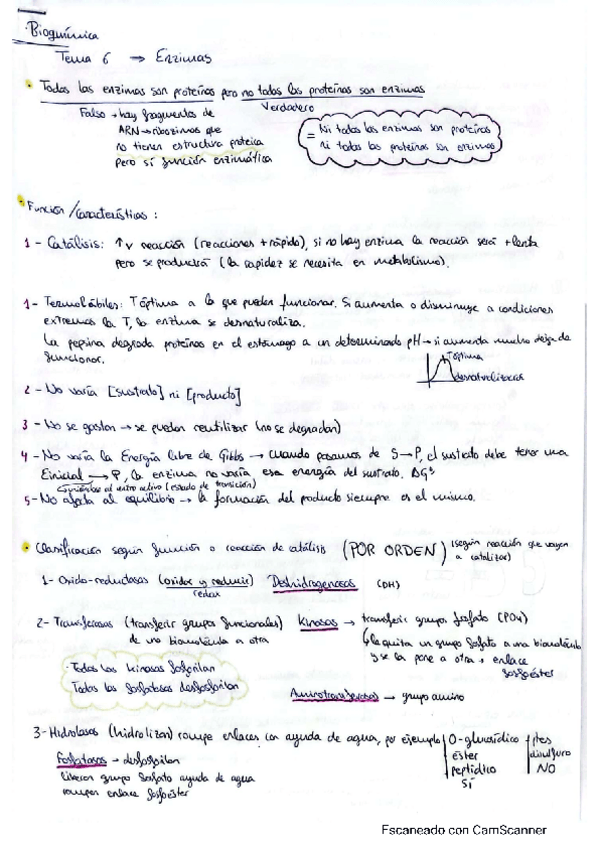 Bioquímica
Tema 6 → Enzimas
Todas las enzimas son proteínas pero no todas las proteínas son enzimas
Falso → hay fragmentos de
Verdadero
ARN → ribozimas que
no tienen estructura proteica
pero sí función enzimática
= Ni todas las enzimas son proteínas
ni todas las proteínas son enzimas
Función / Características :
1 - Catálisis: ↑v reacción (reacciones + rápido), si no hay enzima la reacción será + lenta
pero se producirá (la rapidez se necesita en metabolismo).
1 - Termolábiles: T óptima a la que pueden funcionar. Si aumenta o disminuye a condiciones
extremas la T, la enzima se desnaturaliza.
La pepsina degrada proteínas en el estómago a un determinado pH → si aumenta mucho deja de
funcionar.
T óptima
desnaturalización
2 - No varía [sustrato] ni [producto]
3 - No se gastan → se pueden reutilizar (no se degradan)
4 - No varía la Energía libre de Gibbs → cuando pasamos de S → P, el sustrato debe tener una
Einicial → P, la enzima no varía esa energía del sustrato. ΔG
al centro activo (estado de transición)
5 - No afecta al equilibrio → la formación del producto siempre es el mismo.
Clasificación según función o reacción de catálisis (POR ORDEN) (según reacción que vayan
a catalizar)
1 - Oxido-reductasas (oxidar y reducir) Deshidrogenasas (DH)
redox
2 - Transferasas (transferir grupos funcionales) Kinasas → transferir grupo fosfato (PO4)
de una biomolécula a otra
↳ le quita un grupo fosfato a una biomolécula
y se la pone a otra → enlace
fosfoéster
· Todas las kinasas fosforilan
Todas las fosfatasas desfosforilan
Aminotransferasas → grupo amino
3 - Hidrolasas (hidrolizan) rompe enlaces con ayuda de agua, por ejemplo O-glucosídico
éster
peptídico
SÍ
ptes
disulfuro
NO
Fosfatasas → desfosforilan
liberan grupo fosfato ayuda de agua
rompen enlace fosfoéster
Escaneado con CamScanner